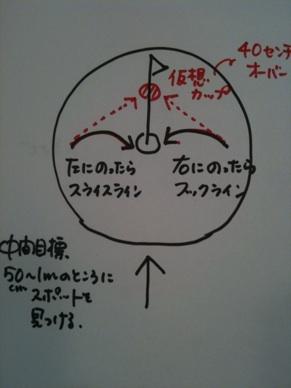 40センチ
オーバー
仮想
カップ
左にのったら
スライスライン
右にのったら
フックライン
中間目標、
50～1mのところに
cm
スポットを
見つける。